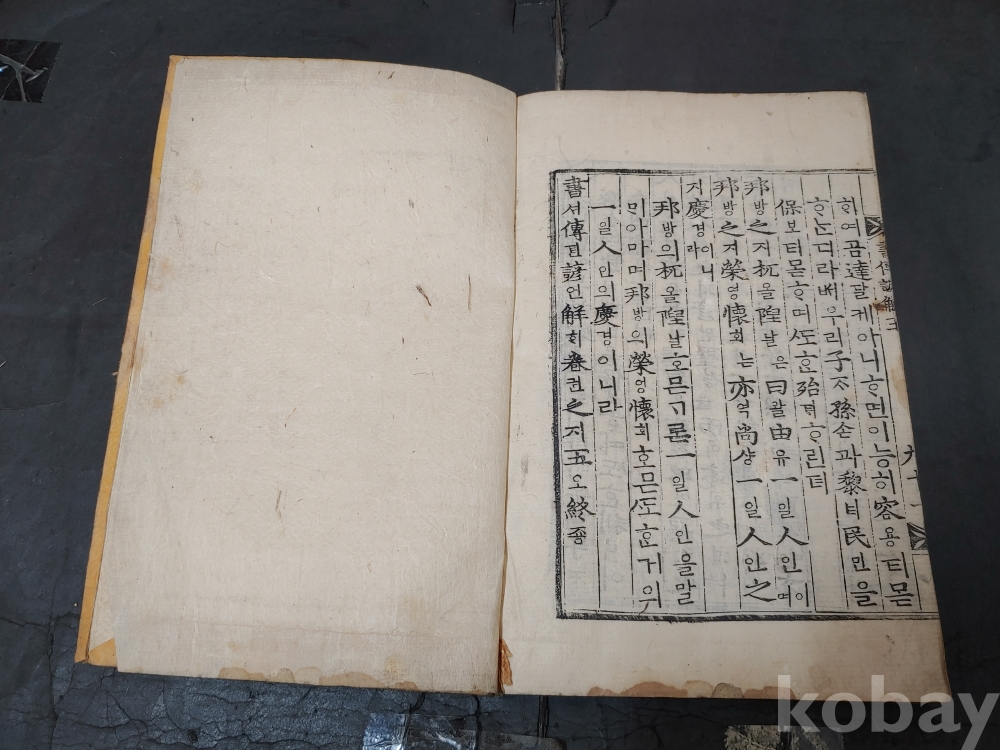 ᄒᆞ여곰達달케아니ᄒᆞ면이능히容용티몯
ᄒᆞᄂᆞᆫ디라ᄡᅥ우리子ᄌᆞ孫손과黎려民민을
保보티몯ᄒᆞ며ᄯᅩᄒᆞᆫ殆ᄐᆡᄒᆞ린뎌
邦방之지杌올隉날은曰왈由유一일人인이며
邦방之지榮영懷회는亦역尙샹一일人인之
지慶경이니라
邦방의杌올隉날호믄一일人인을말
ᄆᆡ아마며邦방의榮영懷회호믄ᄯᅩᄒᆞᆫ거의
一일人인의慶경이니라
書셔傳뎐諺언解ᄒᆡ卷권之지五오終죵
書傳諺解五
kobay